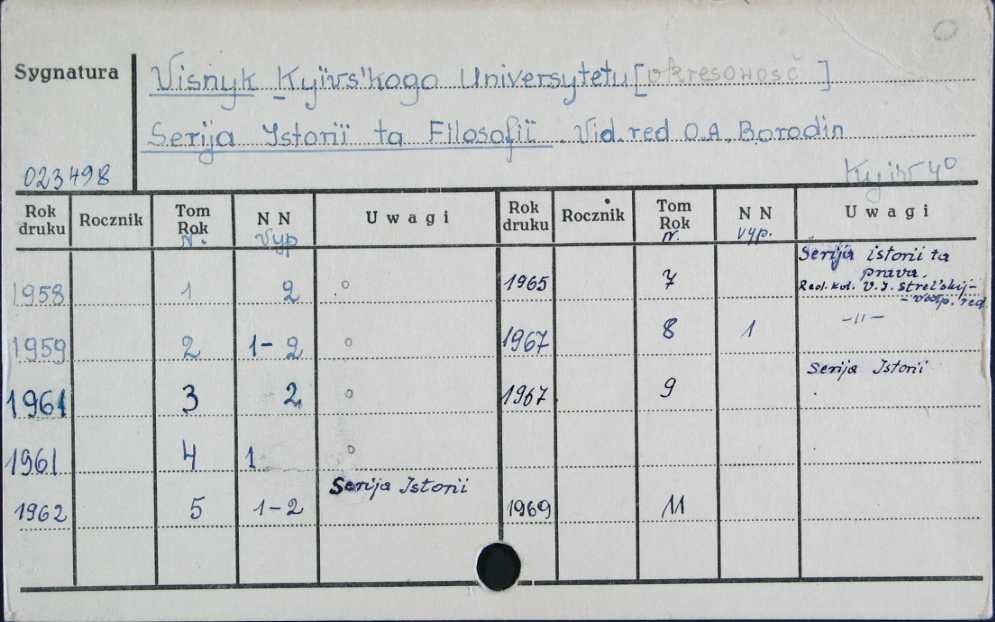 Sygnatura
Visnyk Kyïvs'kogo Universytetu [okresowość]
Serija Istoriï ta Filosofiï. Vid. red O.A. Borodin
023498
Kyïv 4°
Rok druku Rocznik Tom Rok N. N N Vyp Uwagi Rok druku Rocznik Tom Rok N. N N vyp. Uwagi
1958 1 2 ° 1965 7 Serija istorii ta
prava.
Red. kol. V. J. Strel'skij -
- vidp. red
1959 2 1-2 ° 1967 8 1 -"-
1961 3 2 ° 1967 9 Serija Istorii
1961 4 1 °
1962 5 1-2 Serija Istorii 1969 11